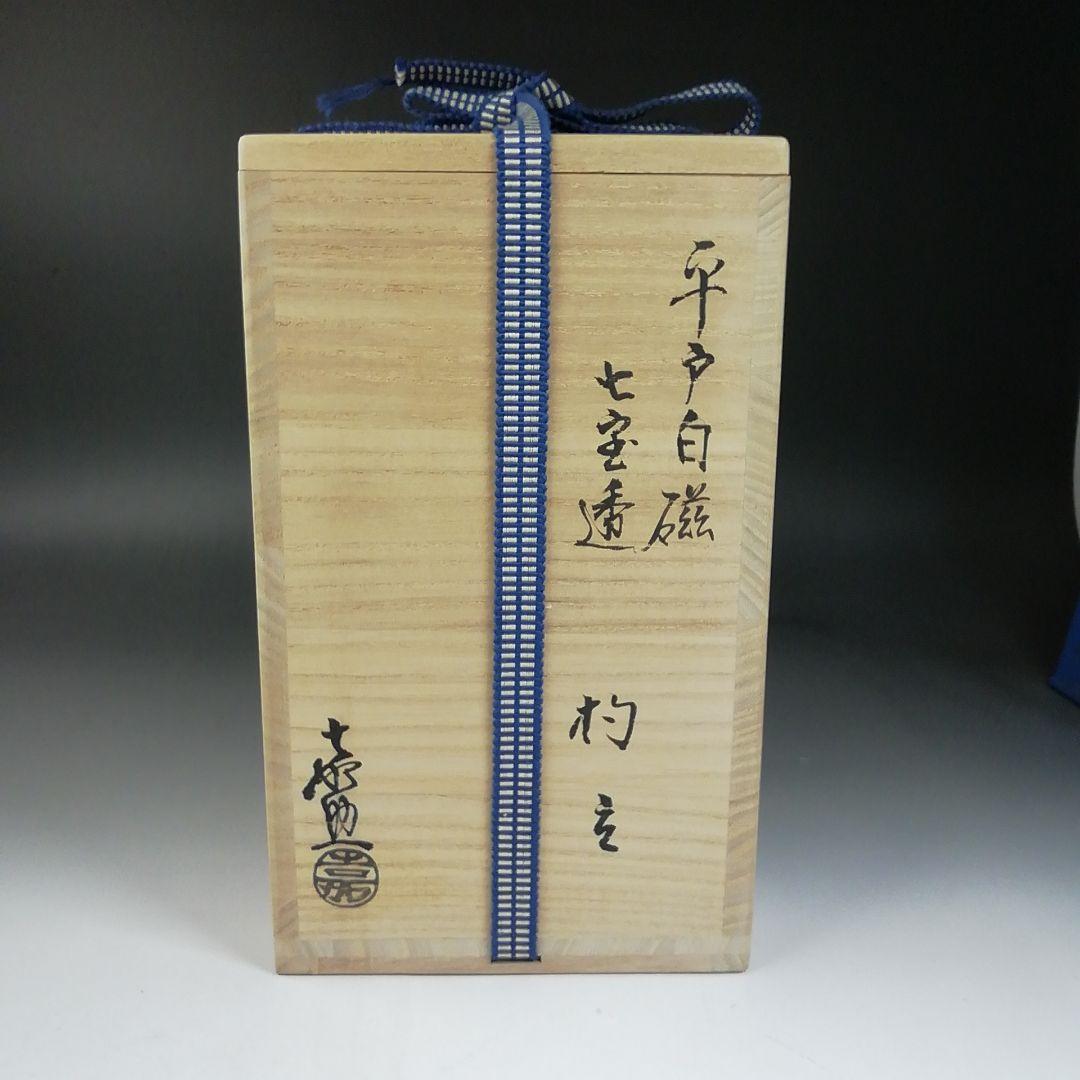 平戸白磁
七宝透
杓立